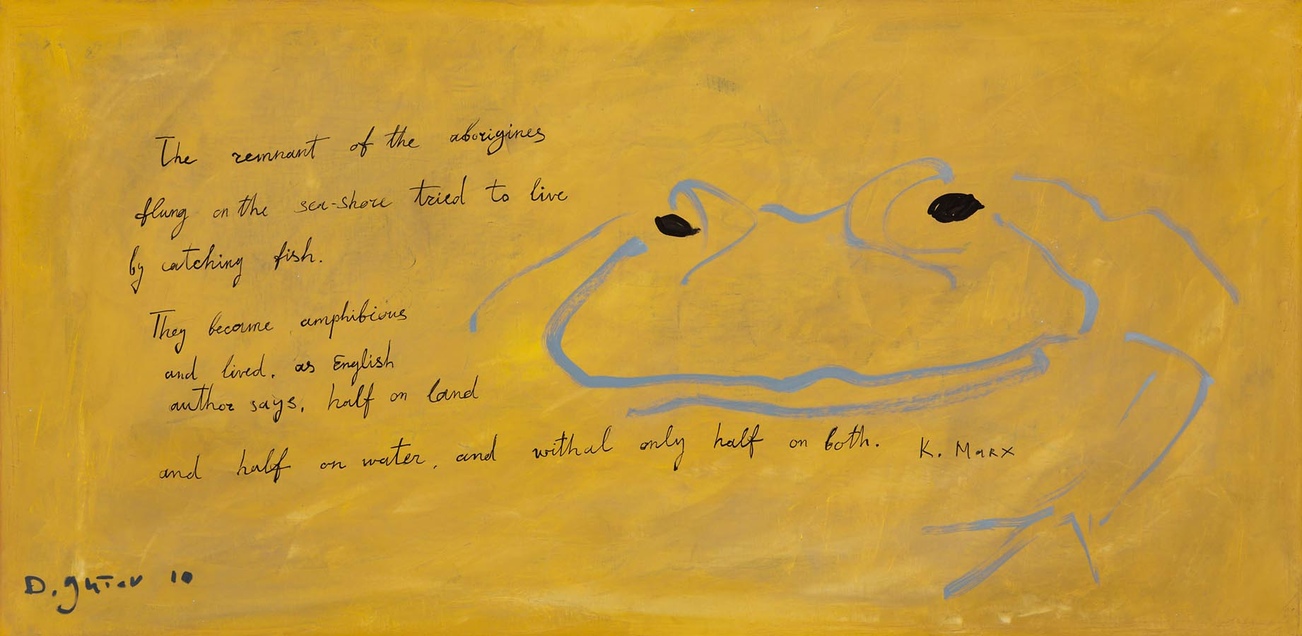 The remnant of the aborigines
flung on the sea-shore tried to live
by catching fish.
They become amphibious
and lived, as English
author says, half on land
and half on water, and withal only half on both. K. Marx
D. Gutov 10